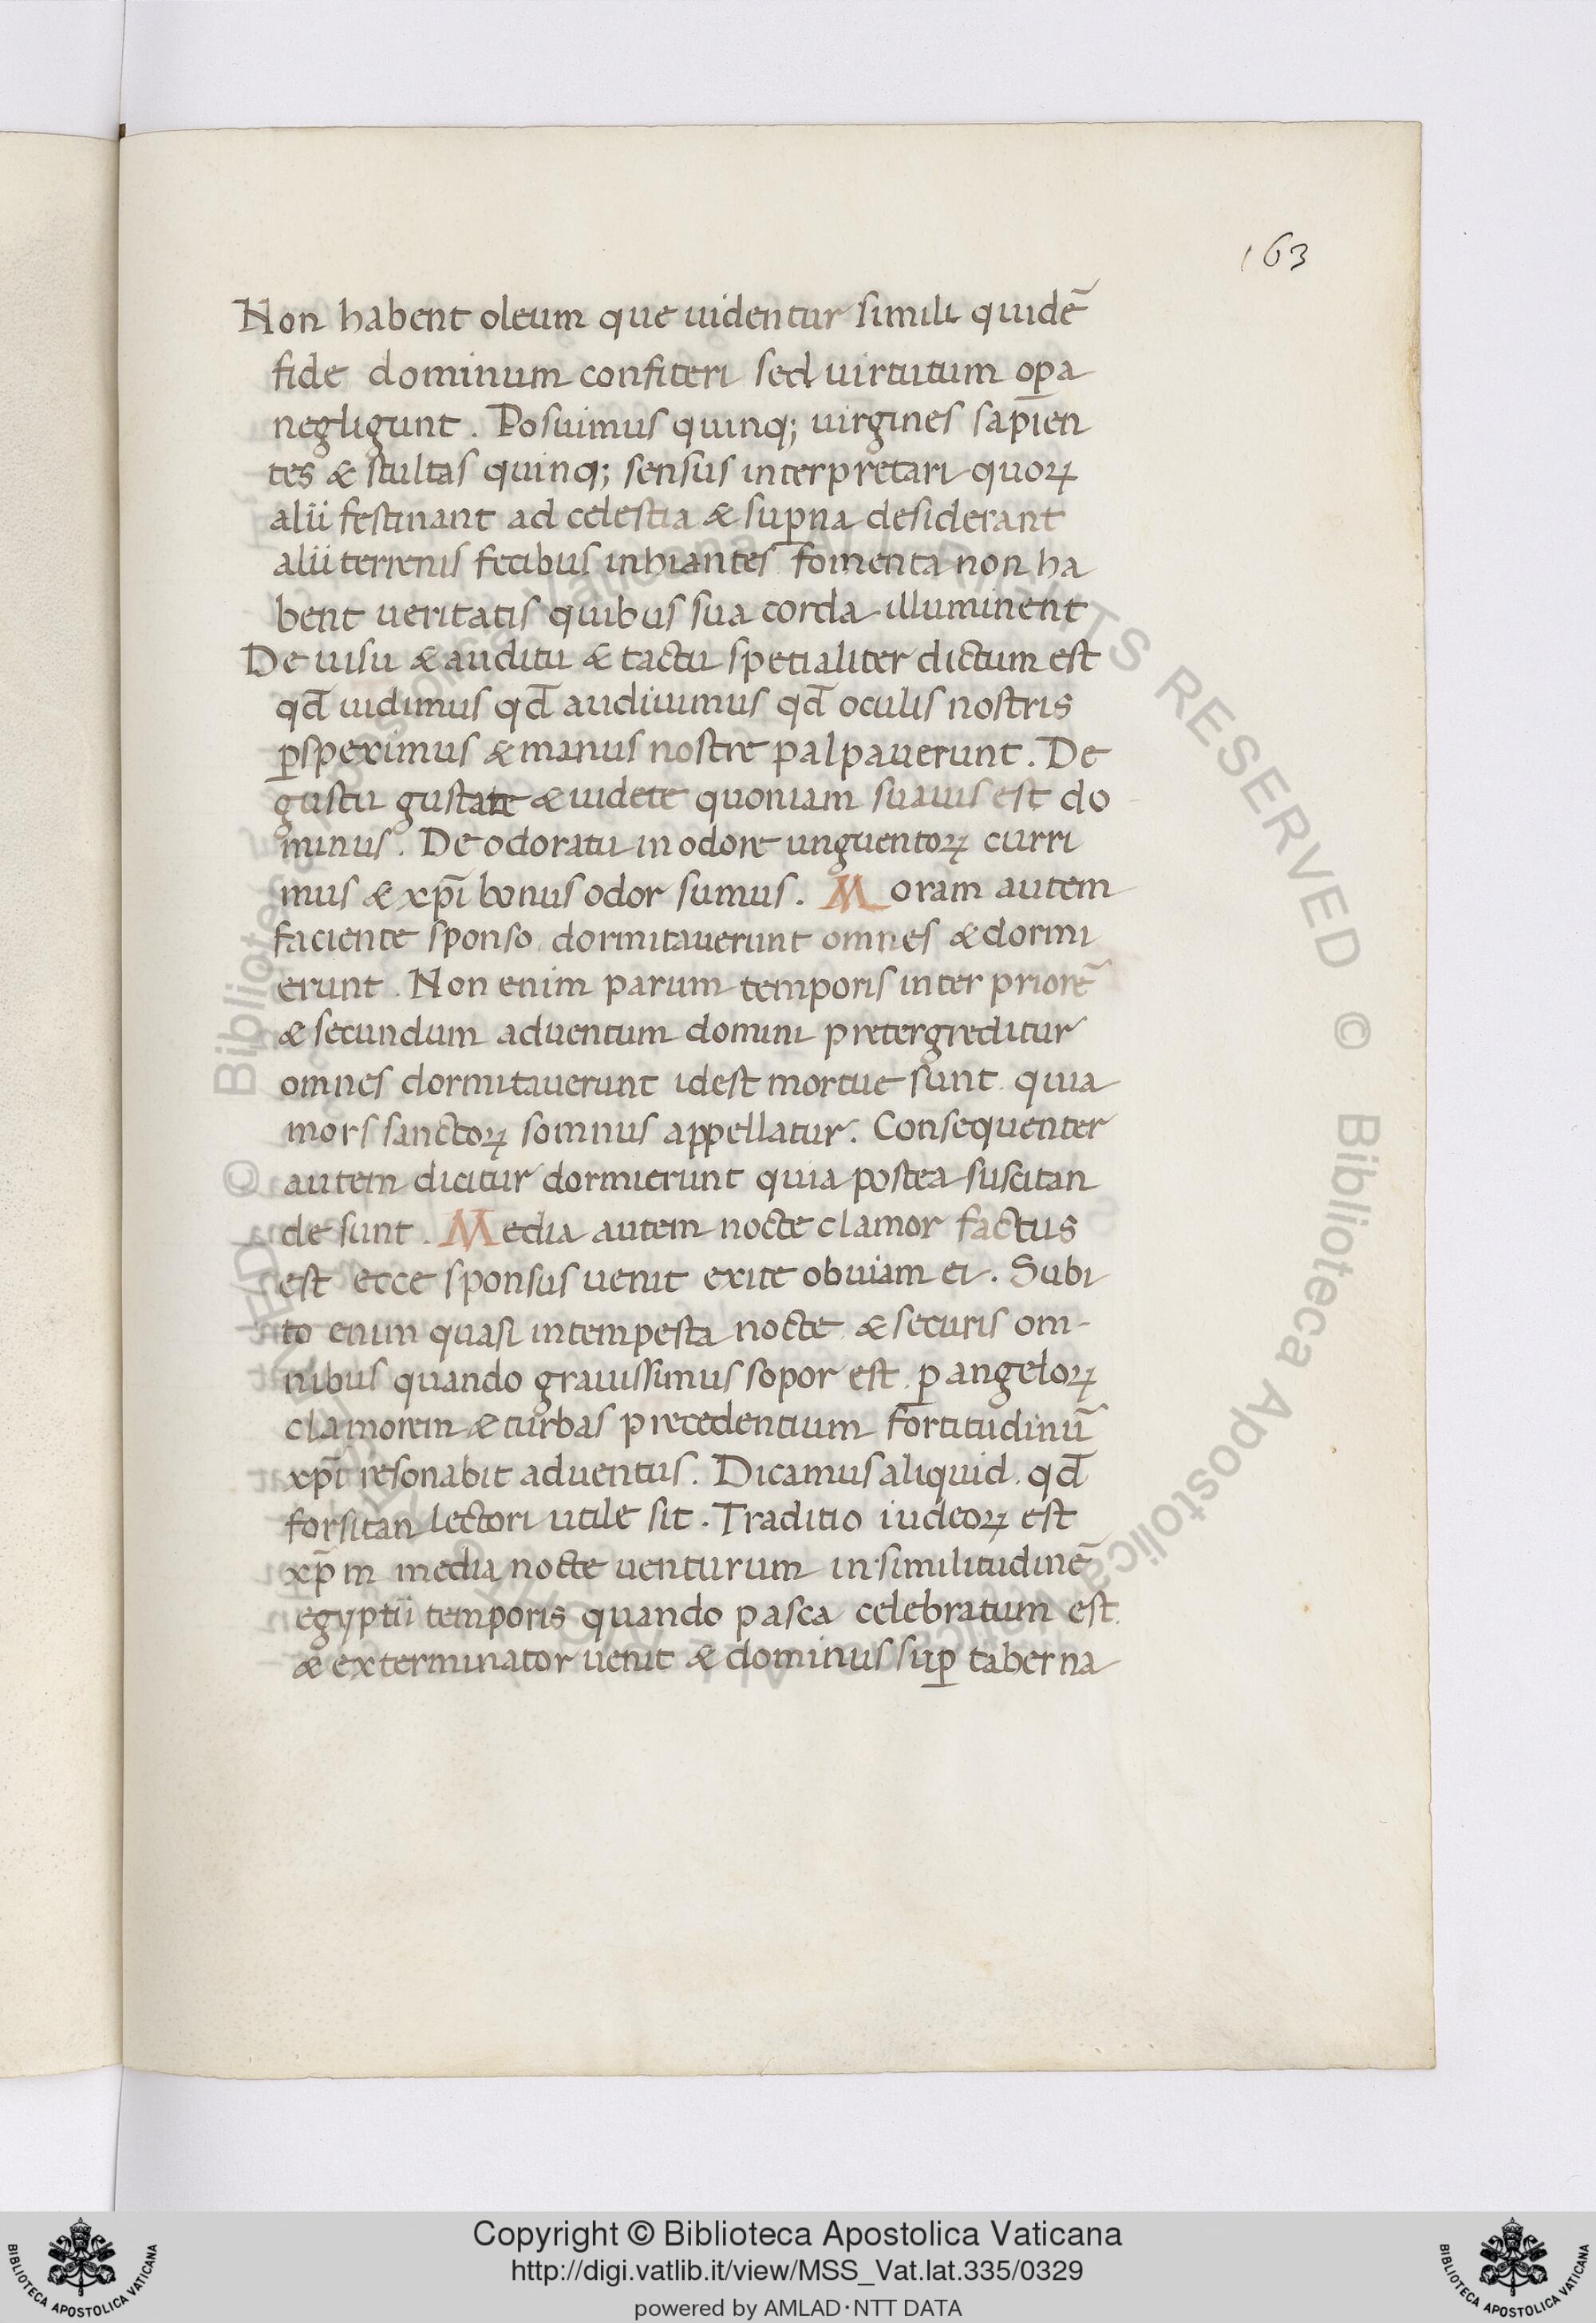 163
Non habent oleum que uidentur simili quidē
fide dominum confiteri sed uirtutum oꝑa
negligunt. Posuimus quinq; uirgines sapien
tes & stultas quinq; sensus interpretari quoꝝ
alii festinant ad celestia & suꝑna desiderant
alii terrenis fecibus inhiantes fomenta non ha
bent ueritatis quibus sua corda illuminent
De uisu & auditu & tactu spetialiter dictum est
qd̄ uidimus qd̄ audiuimus qd̄ oculis nostris
ꝑspeximus & manus nostre palpauerunt. De
gustu gustate & uidete quoniam suauis est do
minus. De odoratu in odore unguentoꝝ curri
mus & xp̄i bonus odor sumus. Moram autem
faciente sponso dormitauerunt omnes & dormi
erunt. Non enim parum temporis inter priorē
& secundum aduentum domini pretergreditur
omnes dormitauerunt idest mortue sunt quia
mors sanctoꝝ somnus appellatur. Consequenter
autem dicitur dormierunt quia postea suscitan
de sunt. Media autem nocte clamor factus
est ecce sponsus uenit exite obuiam ei. Subi
to enim quasi intempesta nocte & securis om-
nibus quando grauissimus sopor est ꝑ angeloꝝ
clamorem & turbas precedentium fortitudinū
xp̄i resonabit aduentus. Dicamus aliquid qd̄
forsitan lectori utile sit. Traditio iudeoꝝ est
xp̄m media nocte uenturum in similitudinē
egyptii temporis quando pasca celebratum est
& exterminator uenit & dominus suꝑ taberna
Copyright © Biblioteca Apostolica Vaticana
http://digi.vatlib.it/view/MSS_Vat.lat.335/0329
powered by AMLAD·NTT DATA
BIBLIOTECA APOSTOLICA VATICANA
BIBLIOTECA APOSTOLICA VATICANA